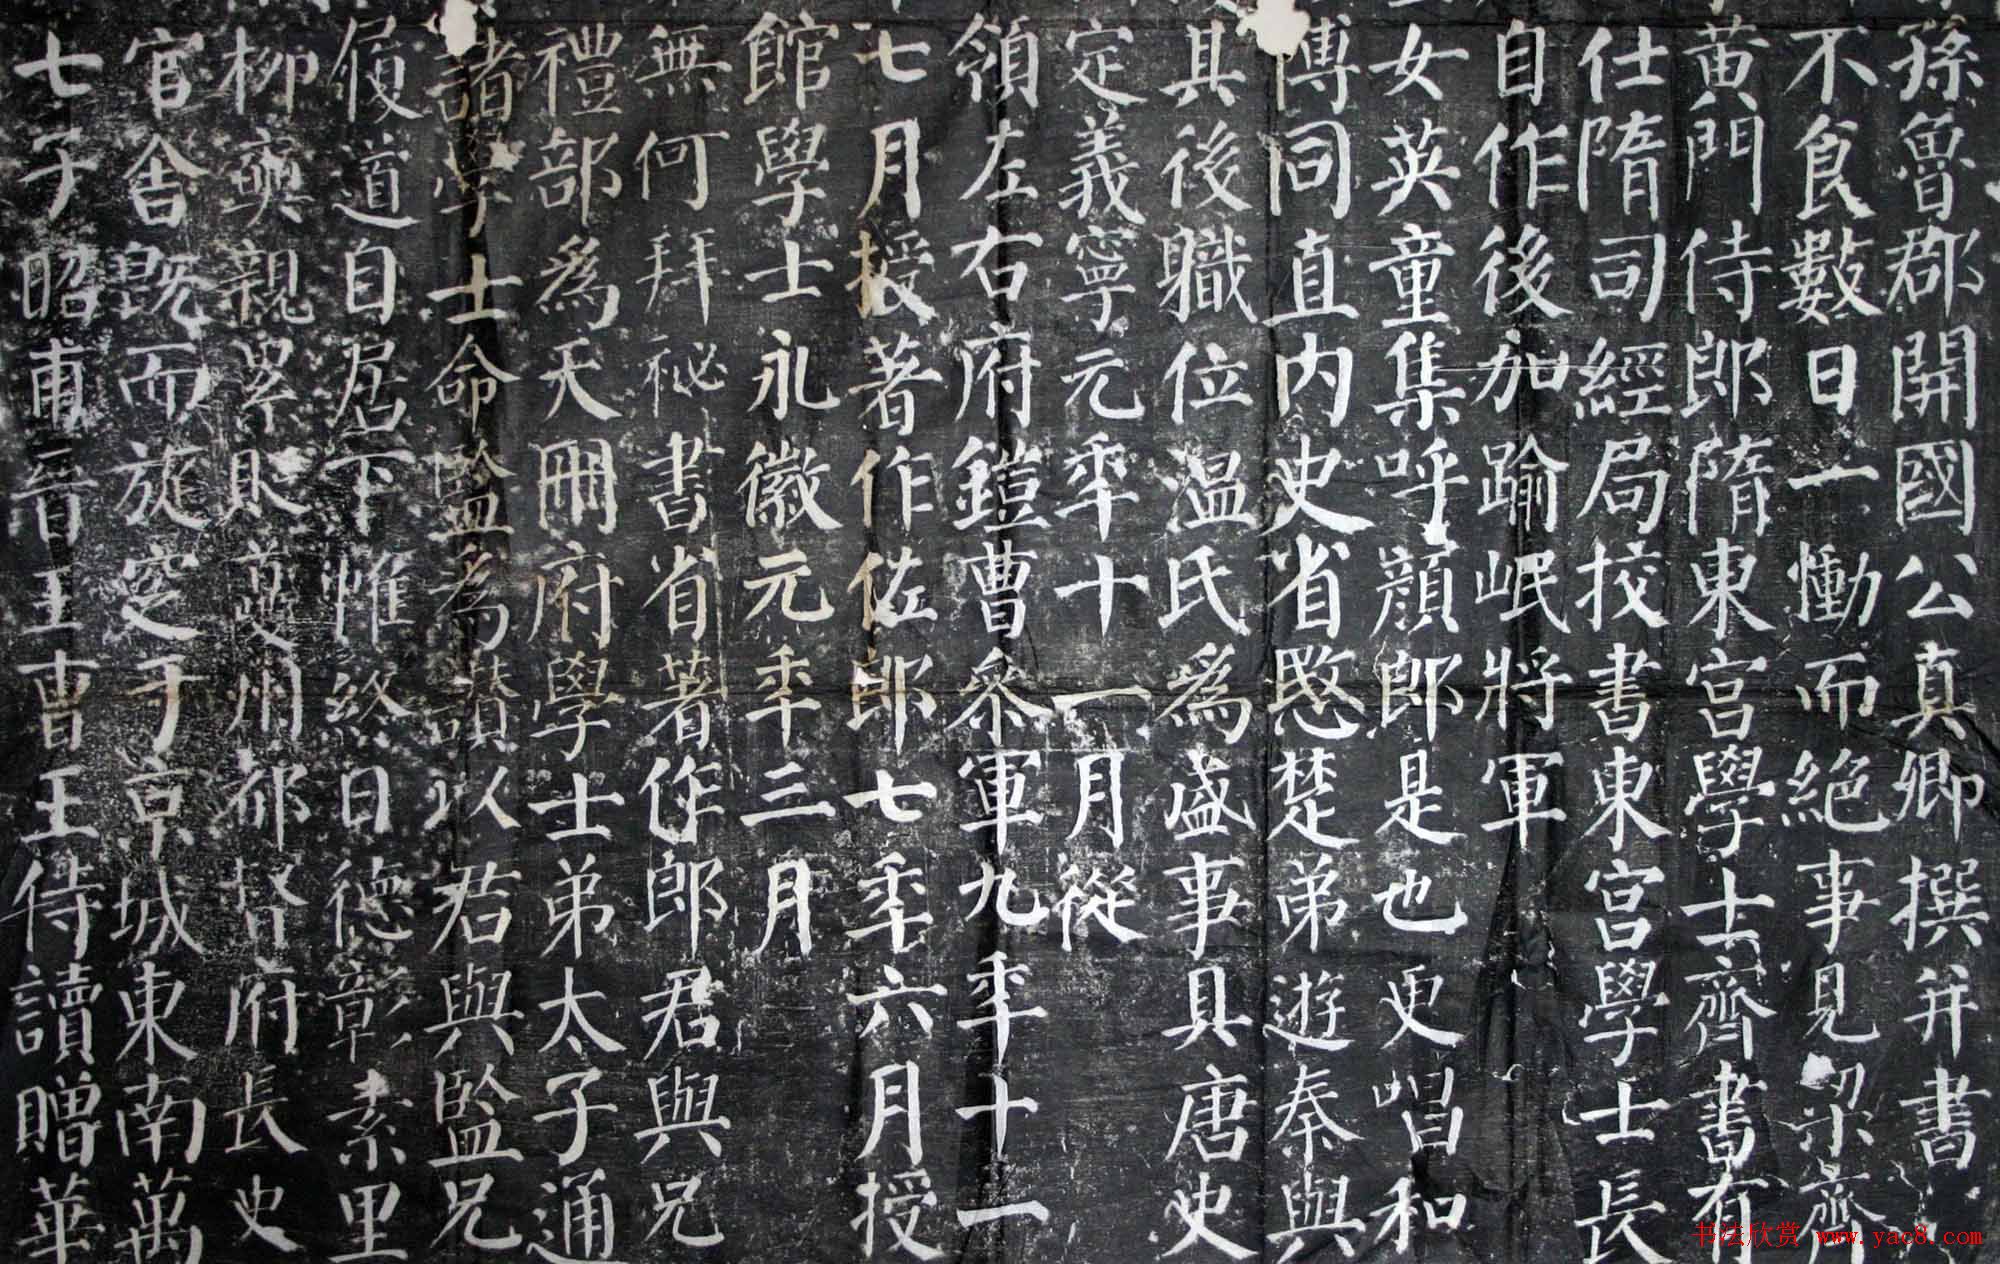 孫魯郡開國公真卿撰并書
不食數日一慟而絶事見梁齊
黄門侍郎隋東宫學士齊書有
仕隋司經局挍書東宫學士長
自作後加踰岷將軍
女英童集呼顔郎是也更唱和
博同直内史省愍楚弟遊秦與
具後職位温氏爲盛事具唐史
定義寧元年十一月從
領左右府鎧曹叅軍九年十一
七月授著作佐郎七年六月授
館學士永徽元年三月
無何拜祕書省著作郎君與兄
禮部爲天冊府學士弟太子通
諸學士命監爲讃以君與監兄
履道自居下帷終日德彰素里
柳奭親累貶夔州都督府長史
官舍既而旋窆于京城東南萬
七子昭甫晉王曹王侍讀贈華
书法欣赏 www.yac8.com